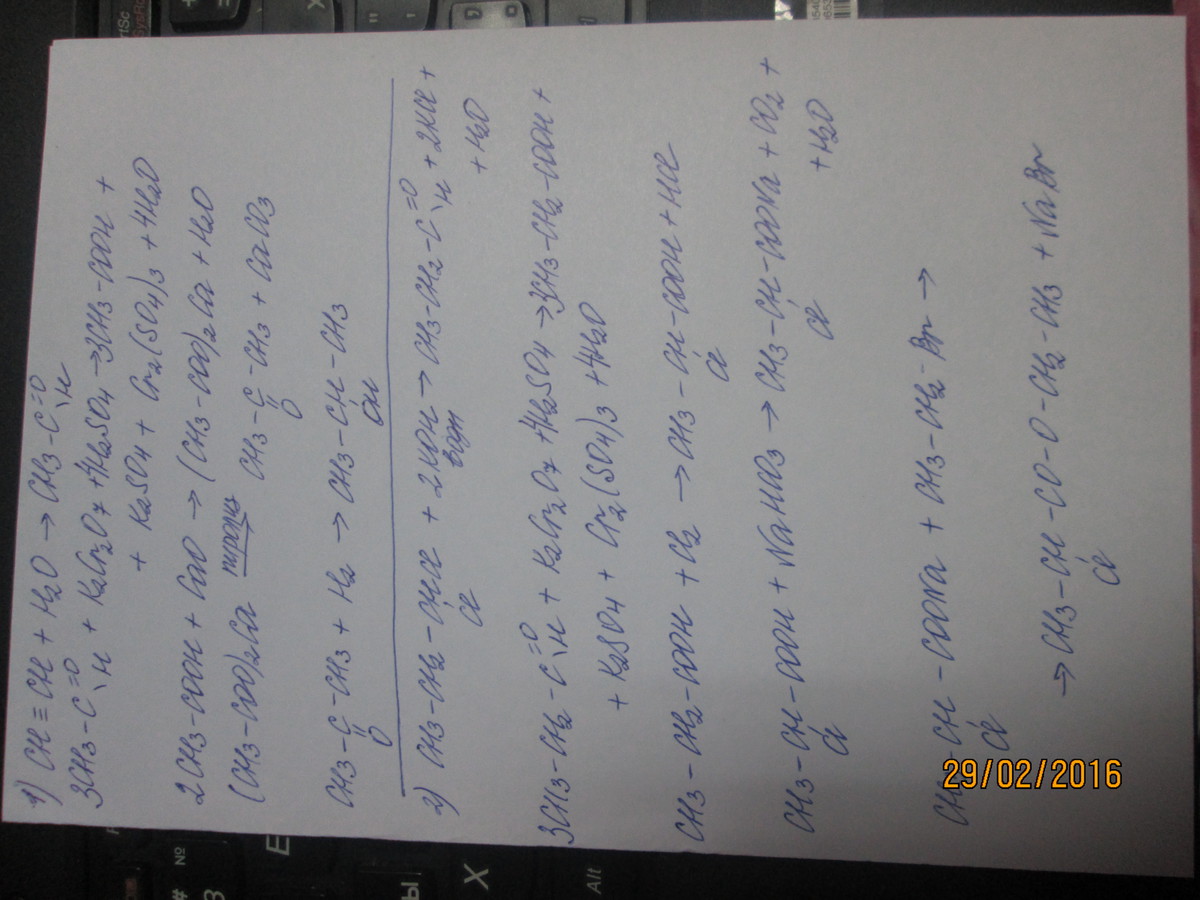 1) CH≡CH + H2O → CH3-C=O\H
3CH3-C=O\H + K2Cr2O7 + 4H2SO4 → 3CH3-COOH +
+ K2SO4 + Cr2(SO4)3 + 4H2O
2CH3-COOH + CaO → (CH3-COO)2Ca + H2O
(CH3-COO)2Ca пиролиз→ CH3-C-CH3 + CaCO3
O
CH3-C-CH3 + H2 → CH3-CH-CH3
O OH
2) CH3-CH2-CHCl + 2KOH → CH3-CH2-C=O\H + 2KCl +
Cl водн + H2O
3CH3-CH2-C=O\H + K2Cr2O7 + 4H2SO4 → 3CH3-CH2-COOH +
+ K2SO4 + Cr2(SO4)3 + 4H2O
CH3-CH2-COOH + Cl2 → CH3-CH-COOH + HCl
Cl
CH3-CH-COOH + NaHCO3 → CH3-CH-COONa + CO2 +
Cl Cl + H2O
CH3-CH-COONa + CH3-CH2-Br →
Cl
→ CH3-CH-CO-O-CH2-CH3 + NaBr
Cl
29/02/2016
№
#
3
E
Ы
X
Alt